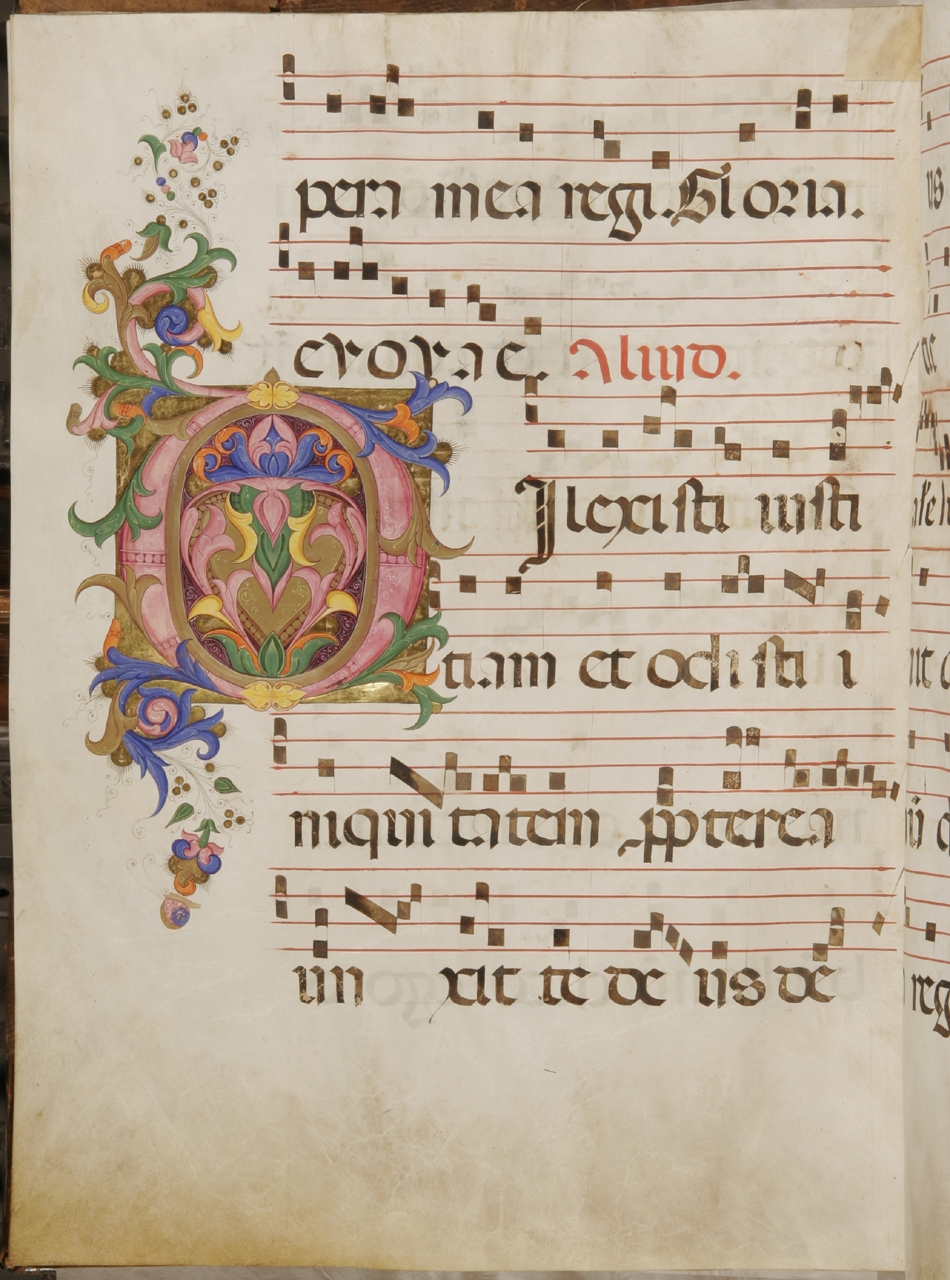 pera mea regi. Gloria.
evovae. Aliud.
Dilexisti iusti
tiam et odisti i
niquitatem ppterea
unxit te de us de